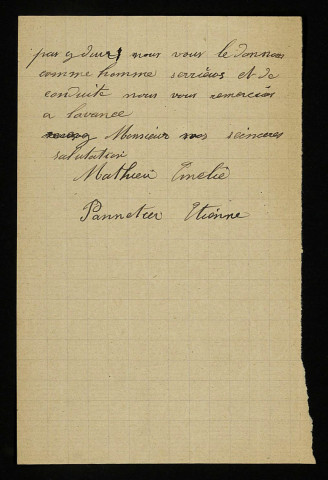 pas y deux nous vous le donnons
comme homme serrieus et de
conduite nous vous remercies
a lavance
Monsieur nos seinceres
salutation
Mathieu Emelie
Pannetier Etienne